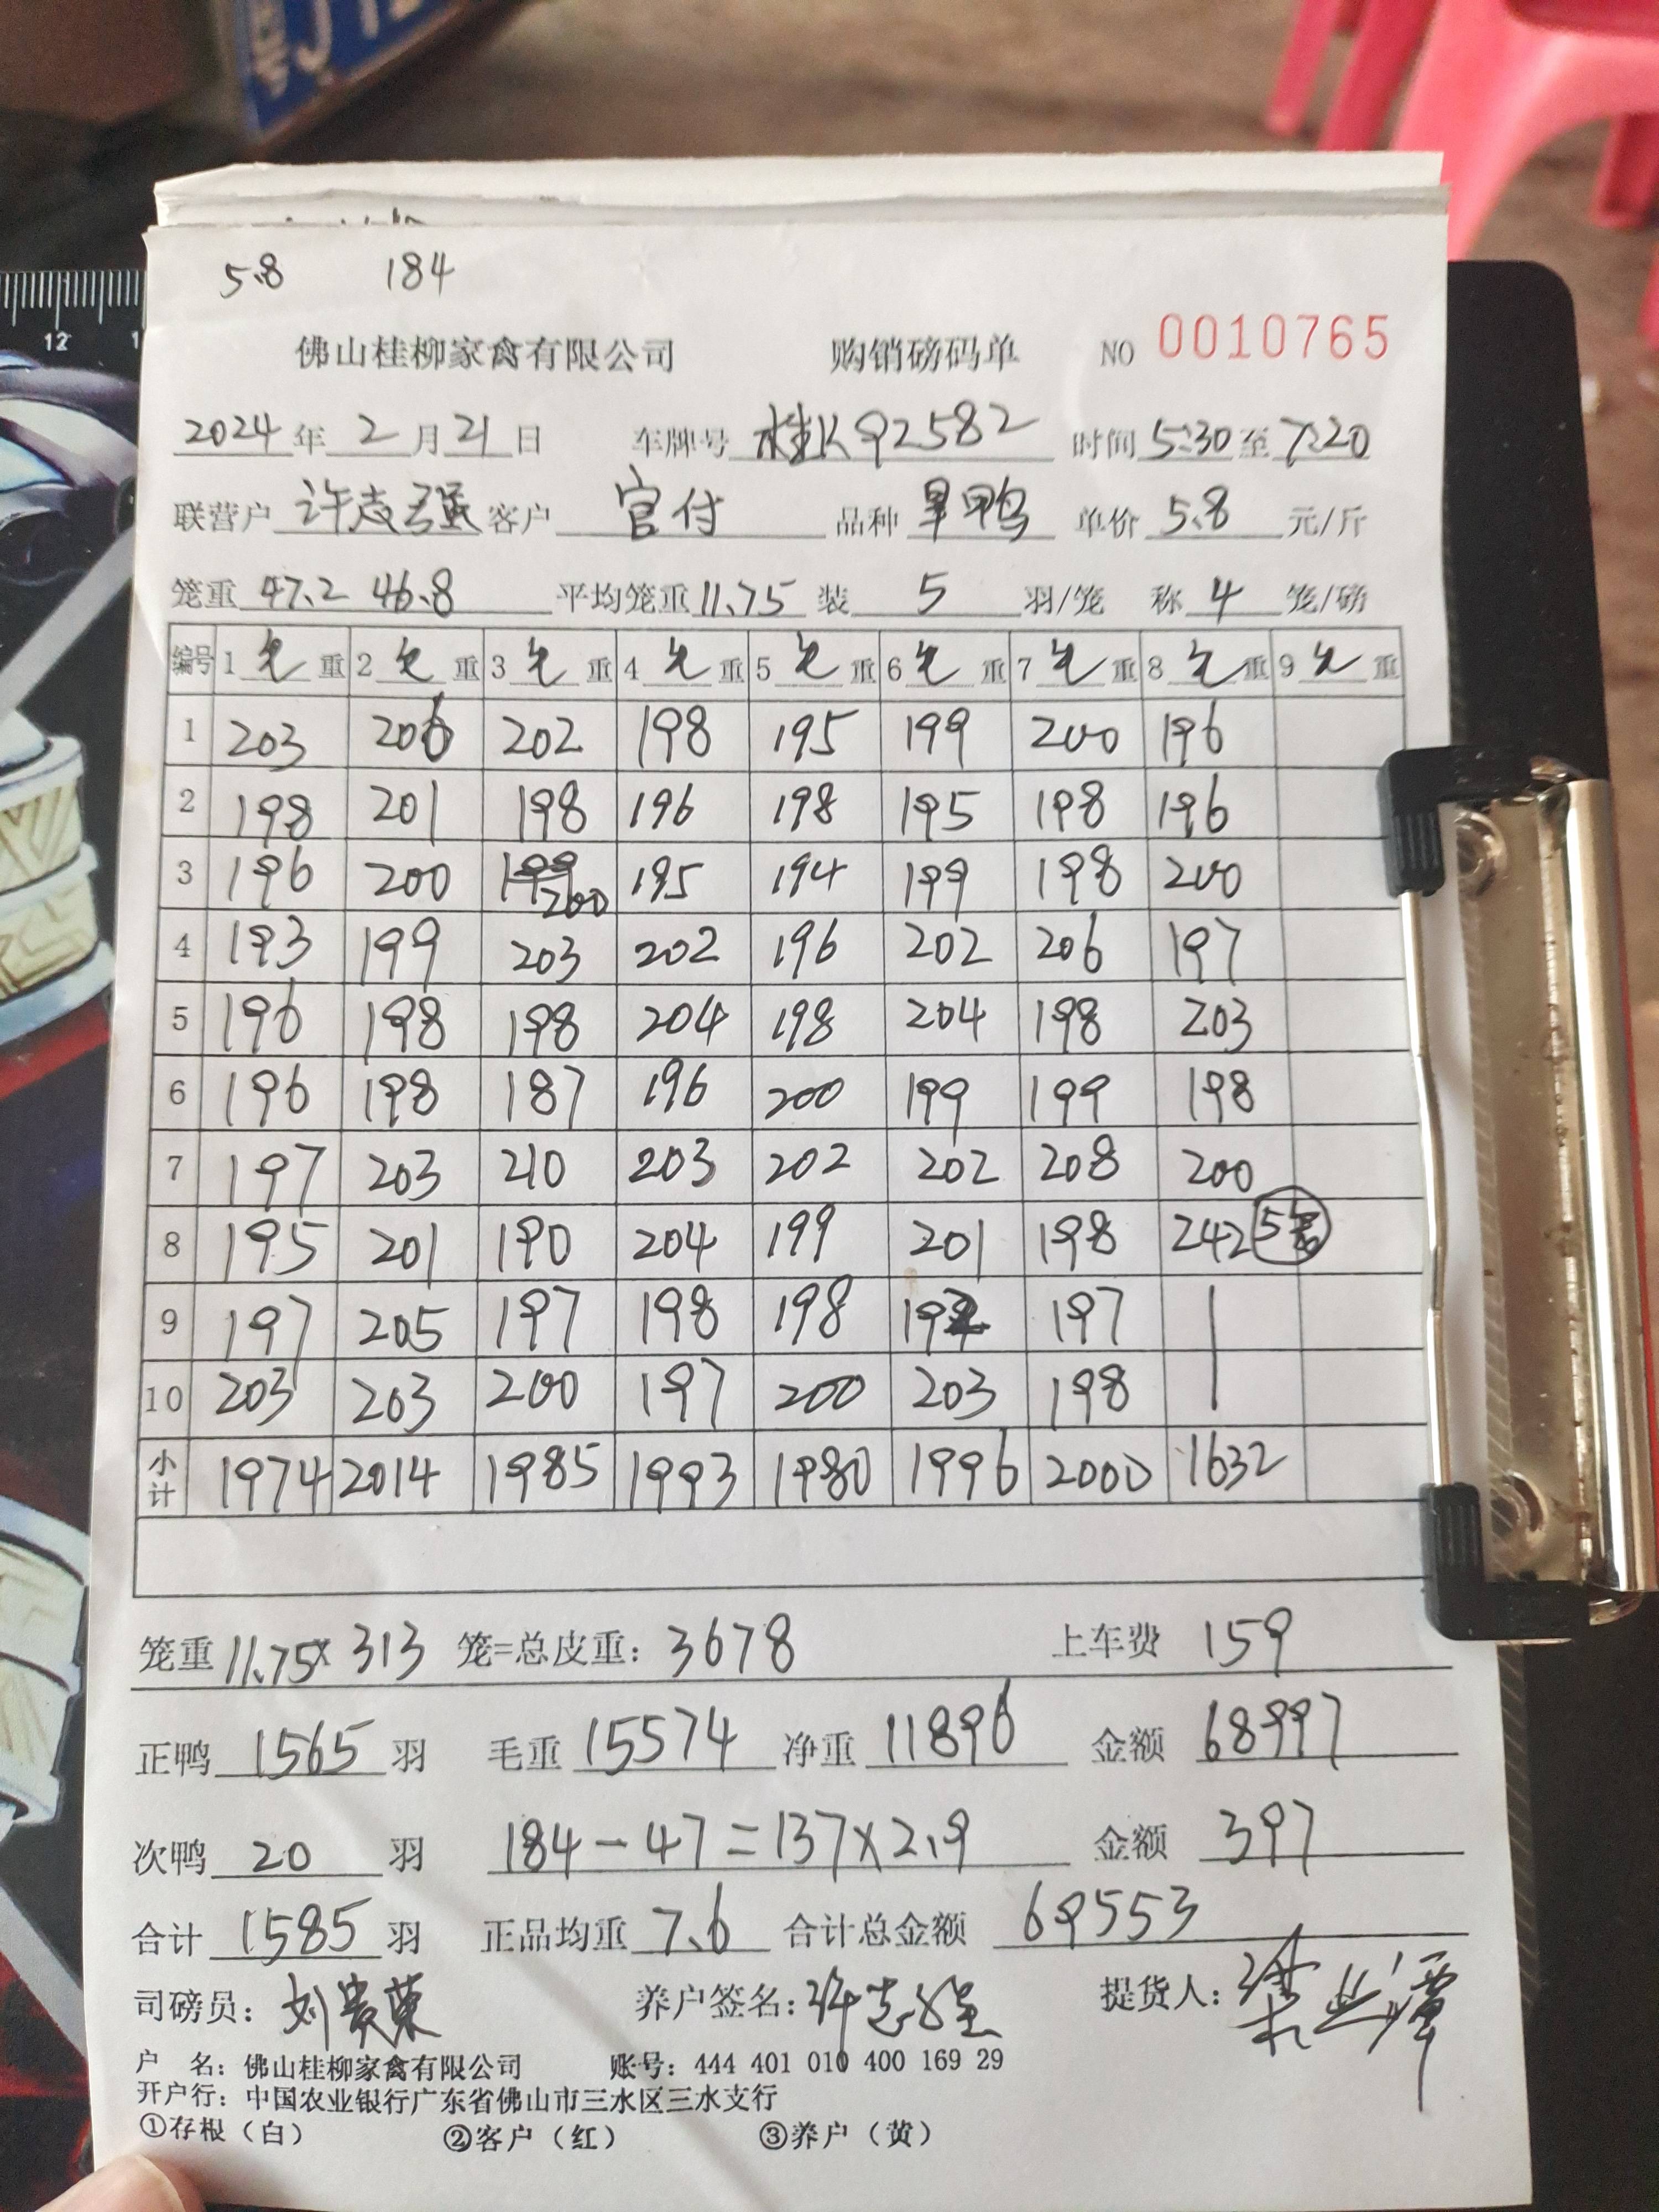 5.8 184
佛山桂柳家禽有限公司 购销磅码单 NO 0010765
2024年2月21日 车牌号 桂K92582 时间5:30至7:20
联营户 许志强 客户 官付 品种 旱鸭 单价 5.8 元/斤
笼重 47.2 46.8 平均笼重 11.75 装 5 羽/笼 称 4 笼/磅
编号 1 毛 重 2 毛 重 3 毛 重 4 毛 重 5 毛 重 6 毛 重 7 毛 重 8 毛 重 9 毛 重
1 203 206 202 198 195 199 200 196
2 198 201 198 196 198 195 198 196
3 196 200 199 200 195 194 199 198 200
4 193 199 203 202 196 202 206 197
5 196 198 198 204 198 204 198 203
6 196 198 187 196 200 199 199 198
7 197 203 210 203 202 202 208 200
8 195 201 190 204 199 201 198 242 5笼
9 197 205 197 198 198 192 197
10 203 203 200 197 200 203 198
小计 1974 2014 1985 1993 1980 1996 2000 1632
笼重 11.75 x 313 笼=总皮重：3678 上车费 159
正鸭 1565 羽 毛重 15574 净重 11896 金额 68997
次鸭 20 羽 184-47=137x2.9 金额 397
合计 1585 羽 正品均重 7.6 合计总金额 69553
司磅员：刘贵荣 养户签名：许志强 提货人：
户 名：佛山桂柳家禽有限公司 账号：444 401 010 400 169 29
开户行：中国农业银行广东省佛山市三水区三水支行
①存根（白） ②客户（红） ③养户（黄）
12